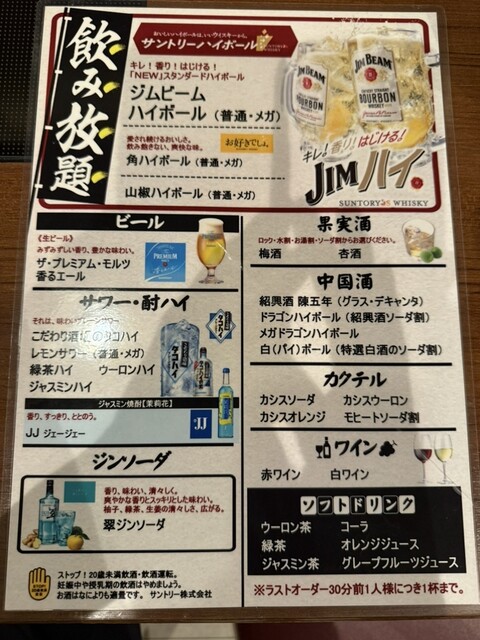 飲み放題
おいしいハイボールは、いいウイスキーから。
サントリーハイボール
キレ!香り!はじける!
「NEW」スタンダードハイボール
ジムビーム
ハイボール(普通・メガ)
愛され続けるおいしさ。
飲み飽きない、爽快な味。
お好きでしょ。
角ハイボール(普通・メガ)
山椒ハイボール(普通・メガ)
JIM BEAM
BOURBON
JIM BEAM
BOURBON
キレ!香り!はじける!
JIMハイ。
SUNTORY WHISKY
ビール
《生ビール》
みずみずしい香り、豊かな味わい。
ザ・プレミアム・モルツ
香るエール
PREMIUM
サワー・酎ハイ
こだわり酒場のタコハイ
レモンサワー(普通・メガ)
緑茶ハイ ウーロンハイ
ジャスミンハイ
タコハイ
ジャスミン焼酎【茉莉花】
香り、すっきり、ととのう。
JJ ジェージェー
JJ
ジンソーダ
香り、味わい、清々しく。
爽やかな香りとスッキリとした味わい。
柚子、緑茶、生姜の清々しさ、広がる。
翠ジンソーダ
ストップ!20歳未満飲酒・飲酒運転。
妊娠中や授乳期の飲酒はやめましょう。
お酒はなによりも適量です。 サントリー株式会社
果実酒
ロック・水割・お湯割・ソーダ割からお選びください。
梅酒 杏酒
中国酒
紹興酒 陳五年(グラス・デキャンタ)
ドラゴンハイボール(紹興酒ソーダ割)
メガドラゴンハイボール
白(パイ)ボール(特選白酒のソーダ割)
カクテル
カシスソーダ カシスウーロン
カシスオレンジ モヒートソーダ割
ワイン
赤ワイン 白ワイン
ソフトドリンク
ウーロン茶 コーラ
緑茶 オレンジジュース
ジャスミン茶 グレープフルーツジュース
※ラストオーダー30分前1人様につき1杯まで。